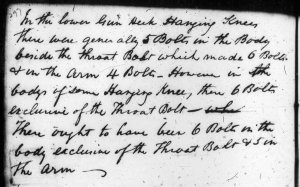 In the lower Gun Deck Hanging Knees
there were generally 5 Bolts in the Body
beside the Throat Bolt which made 6 Bolts
& in the Arm 4 Bolts - However in the
bodys of some Hanging Knees, there 6 Bolts
exclusive of the Throat Bolt -
There ought to have been 6 Bolts in the
body exclusive of the Throat Bolt & 5 in
the Arm -